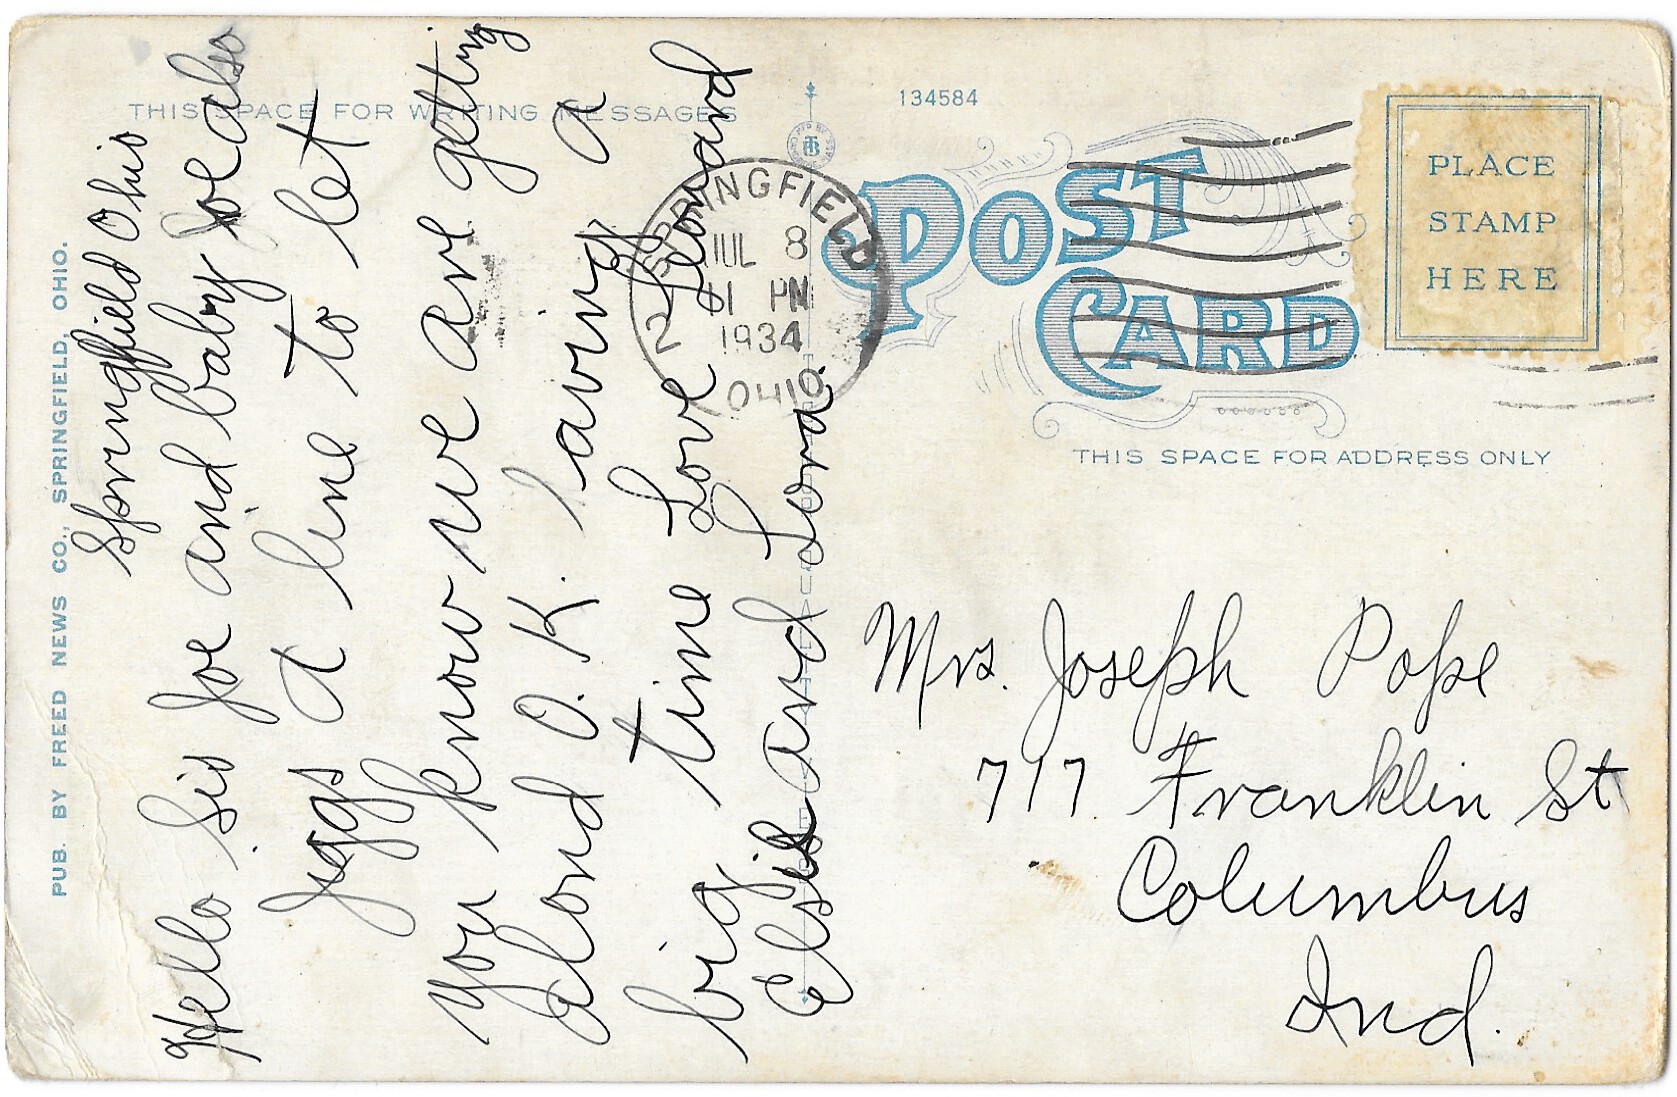 PUB. BY FREED NEWS CO., SPRINGFIELD, OHIO.
THIS SPACE FOR WRITING MESSAGES
Springfield Ohio
Hello Sis Joe and baby Joe also
Jiggs a line to let
you know we are getting
alond O.K. having a
big time Love Leonard
Elsie and Lora
134584
SPRINGFIELD
JUL 8
PM
1934
OHIO
2
POST
CARD
PLACE
STAMP
HERE
THIS SPACE FOR ADDRESS ONLY
Mrs. Joseph Pope
717 Franklin St
Columbus
Ind.